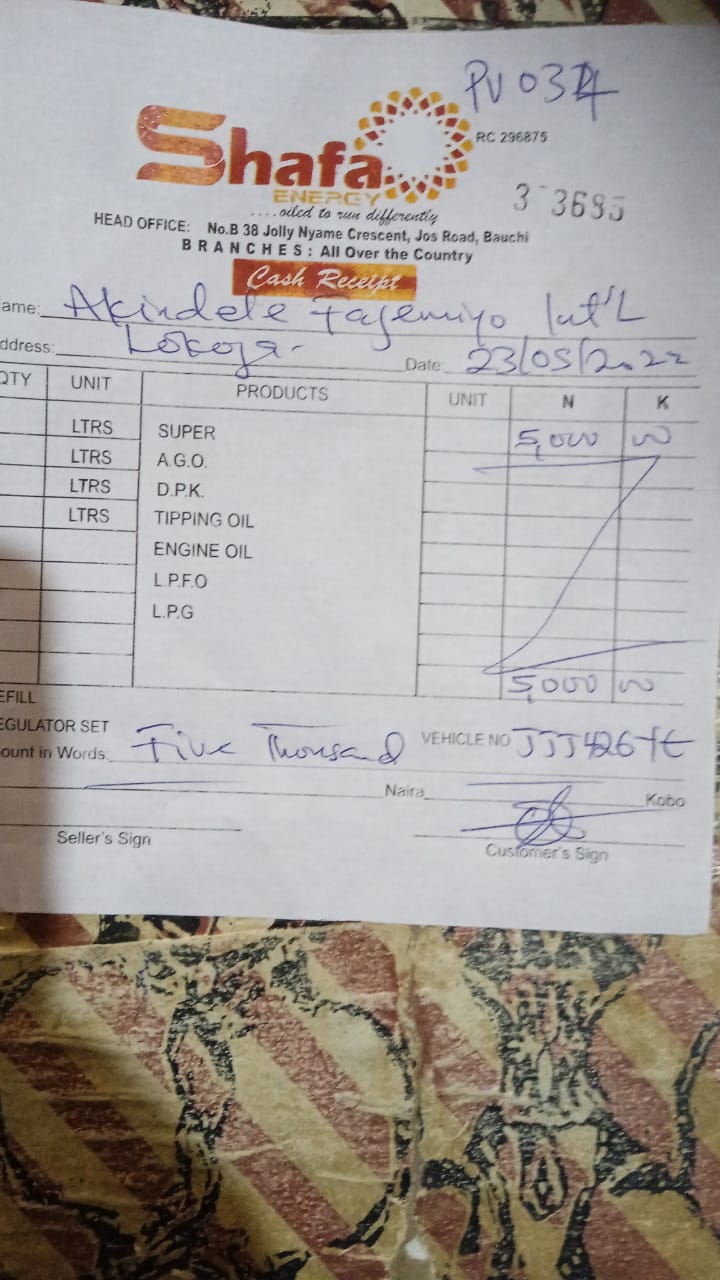 PV 034
Shafa
ENERGY
RC 296875
....oiled to run differently
3 3685
HEAD OFFICE: No.B 38 Jolly Nyame Crescent, Jos Road, Bauchi
BRANCHES: All Over the Country
Cash Receipt
ame: Akindele Fasemiyo Int'L
ddress: Lokoja-
Date: 23/05/2022
QTY UNIT PRODUCTS UNIT N K
LTRS SUPER 5,000 00
LTRS A.G.O.
LTRS D.P.K.
LTRS TIPPING OIL
ENGINE OIL
L.P.F.O
L.P.G
5,000 00
EFILL
EGULATOR SET
ount in Words: Five Thousand VEHICLE NO JJJ426
Naira Kobo
Seller's Sign Customer's Sign